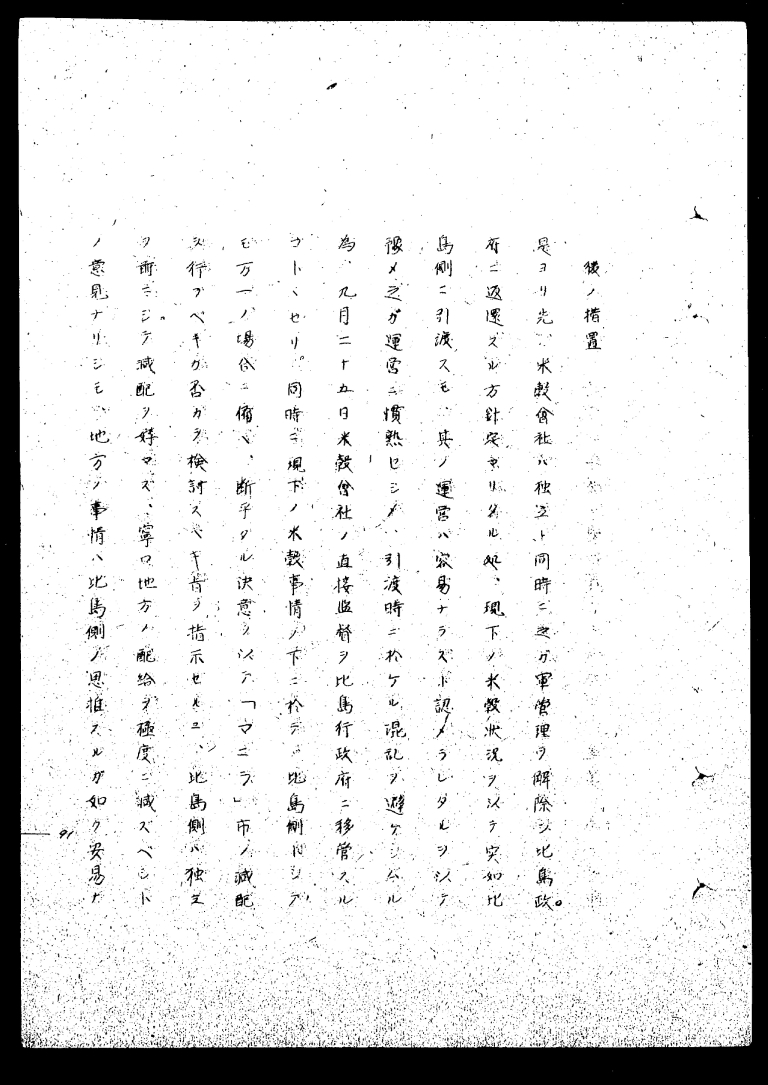 後ノ措置
是ヨリ先、米穀會社ハ独立ト同時ニ之ガ軍管理ヲ解除シ比島政
府ニ返還スル方針定マリタル処、現下ノ米穀状況ヲ以テ突如比
島側ニ引渡スモ、其ノ運営ハ容易ナラズト認メラレタルヲ以テ
豫メ之ガ運営ニ慣熟セシメ、引渡時ニ於ケル混乱ヲ避ケシムル
為、九月二十五日米穀會社ノ直接監督ヲ比島行政府ニ移管スル
コトヽセリ。同時ニ現下ノ米穀事情ノ下ニ於テハ比島側トシテ
モ万一ノ場合ニ備ヘ、断乎タル決意ヲ以テ「マニラ」市ノ減配
ヲ行フベキカ否カヲ検討スベキ旨ヲ指示セルニ、比島側ハ独立
ヲ前ニシテ減配ヲ好マズ、寧ロ地方ノ配給ヲ極度ニ減ズベシト
ノ意見ナリシモ、地方ノ事情ハ比島側ノ思惟スルガ如ク安易ナ
91